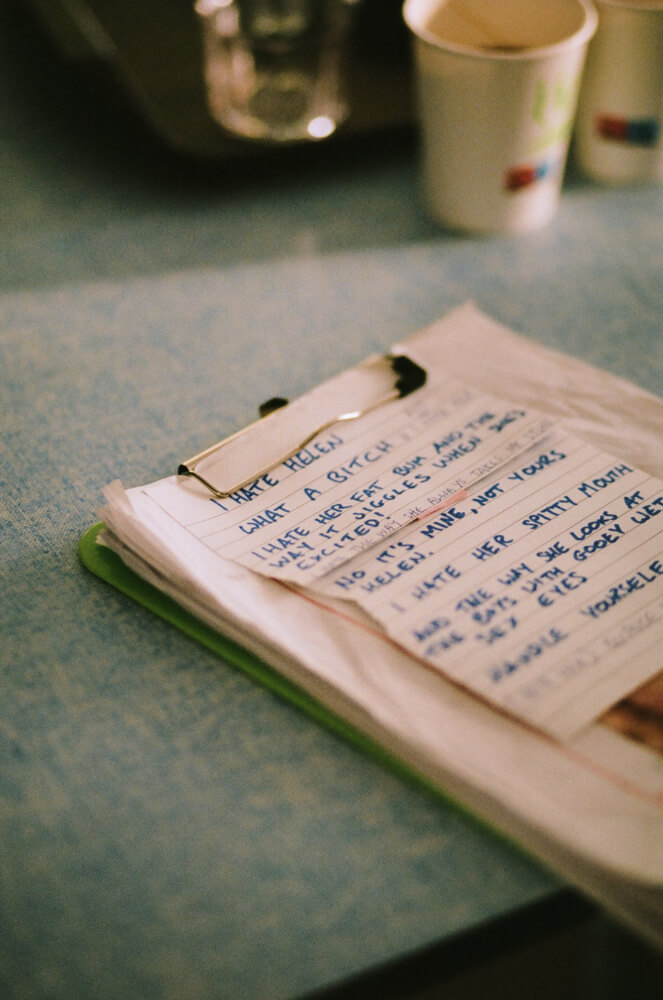 I HATE HELEN
WHAT A BITCH
I HATE HER FAT BUM AND THE
WAY IT JIGGLES WHEN SHE'S
EXCITED.
THE WAY SHE ALWAYS TAKES MY
NO IT'S MINE, NOT YOURS
HELEN.
I HATE HER SPITTY MOUTH
AND THE WAY SHE LOOKS AT
THE BOYS WITH GOOEY WET
SEX EYES
HANDLE YOURSELF